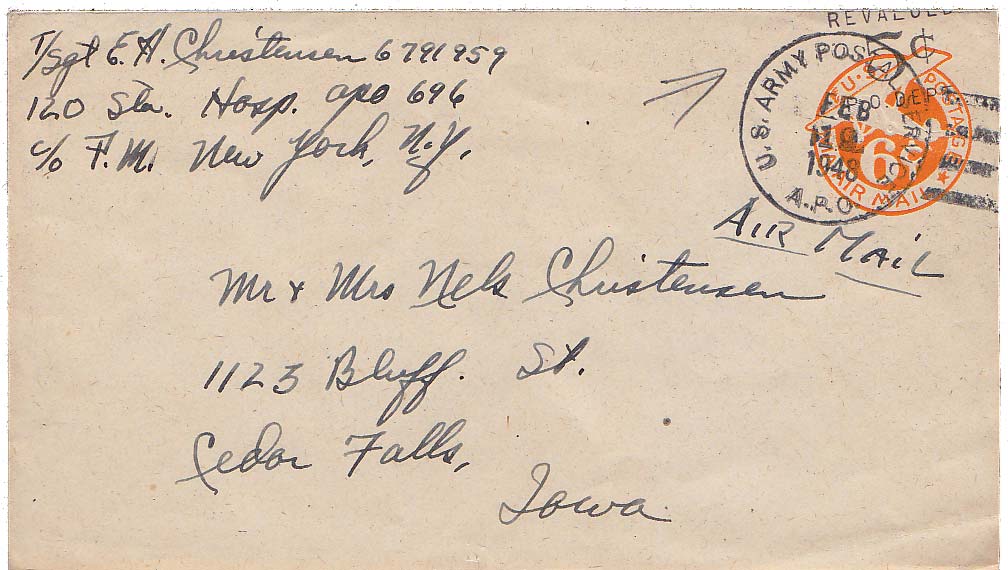 T/Sgt E. H. Christensen 6791959
120 Sta. Hosp. apo 696
c/o P.M. New York, N.Y.
REVALUED
5¢
P.O. DEPT
U.S. ARMY POSTAL SERVICE
FEB
1948
A.P.O.
U.S. POSTAGE
6¢
AIR MAIL
Air Mail
Mr & Mrs Nels Christensen
1123 Bluff. St.
Cedar Falls,
Iowa